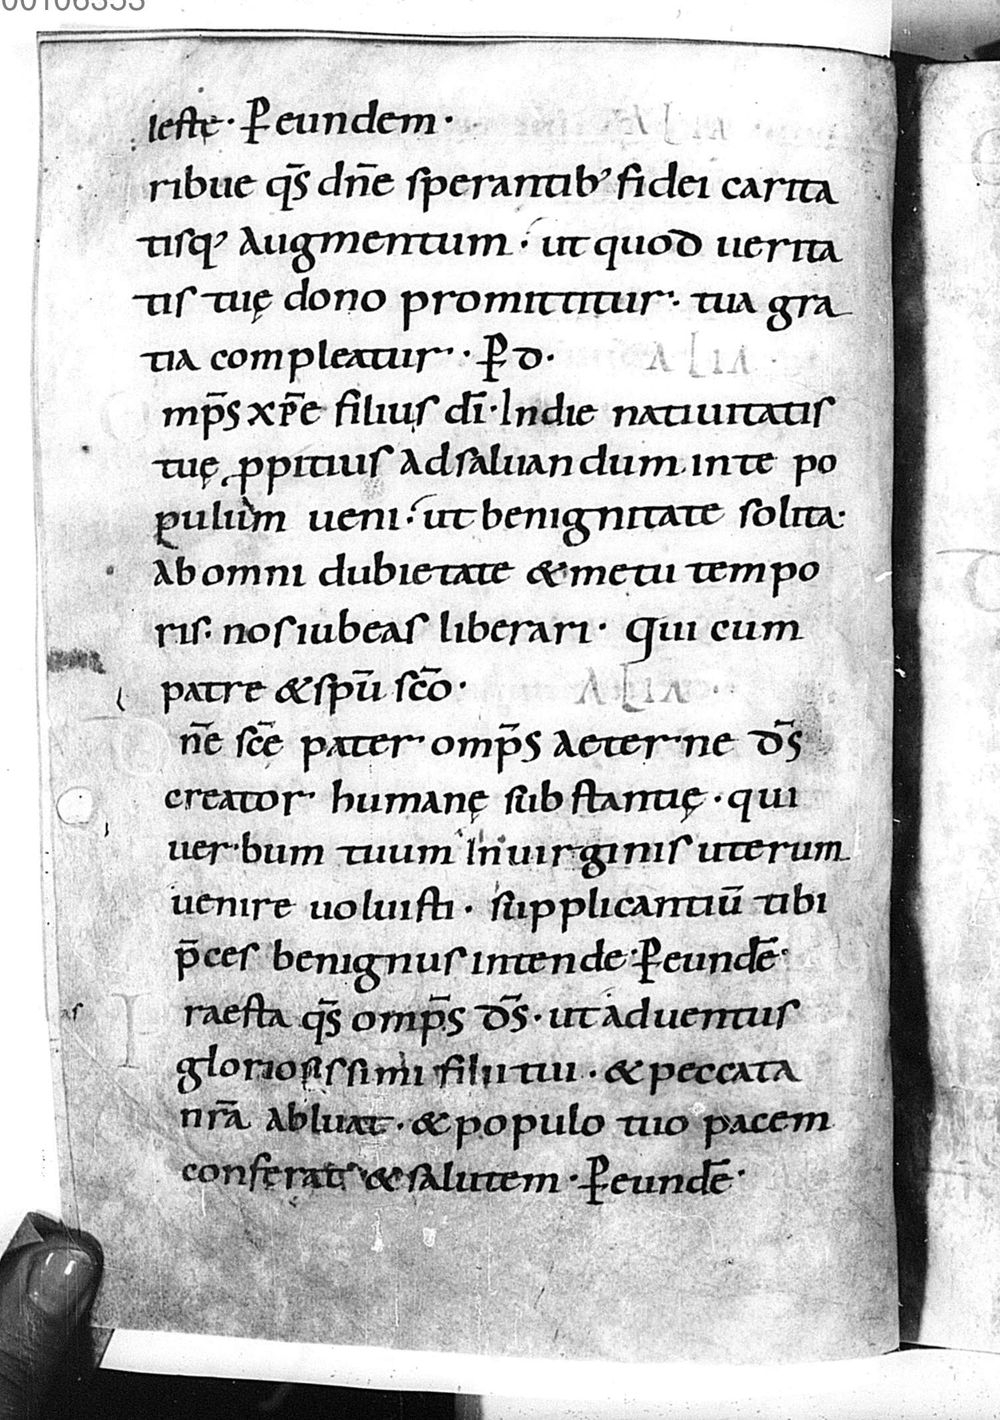 00106353
lestę· P̱ eundem·
ribue qs̄ dn̄e sperantib' fidei carita
tisq' augmentum· ut quod uerita
tis tuę dono promittitur· tua gra
tia compleatur· P̱ d·
mp̄s xp̄e filius dī· In die natiuitatis
tuę ꝓpitius ad saluandum in te po
pulum ueni· ut benignitate solita·
ab omni dubietate & metu tempo
ris· nos iubeas liberari· Qui cum
patre & spū sc̄o·
ALIA
n̄e sc̄e pater omp̄s aeterne ds̄
creator humanę substantię· qui
uerbum tuum in uirginis uterum
uenire uoluisti· supplicantiū tibi
p̄ces benignus intende· P̱ eundē·
raesta qs̄ omp̄s ds̄· ut aduentus
gloriosissimi filii tui· & peccata
nr̄a abluat· & populo tuo pacem
conferat & salutem· P̱ eundē·